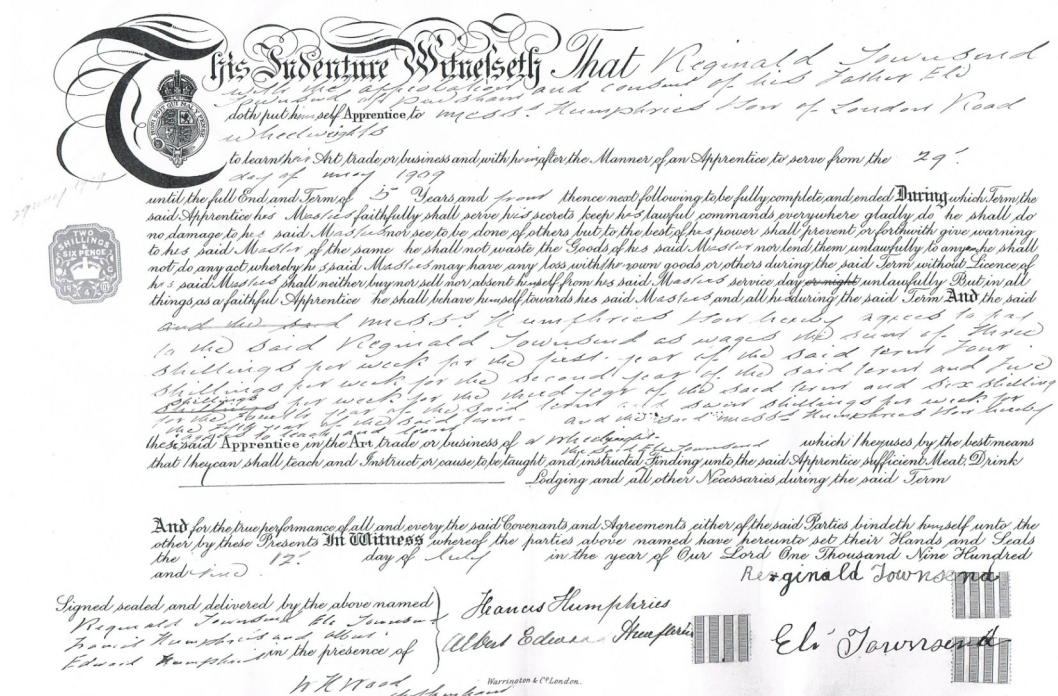 This Indenture Witnesseth That Reginald Townsend
with the approbation and consent of his Father Eli
Townsend of
doth put himself Apprentice to Messrs. Humphries of London Road
wheelwrights
to learn his Art trade or business and with him after the Manner of an Apprentice to serve from the 29th
day of May 1909
until the full End and Term of 5 Years and from thence next following to be fully complete and ended During which Term the
said Apprentice his Masters faithfully shall serve his secrets keep his lawful commands everywhere gladly do he shall do
no damage to his said Masters nor see to be done of others but to the best of his power shall prevent or forthwith give warning
to his said Master of the same he shall not waste the Goods of his said Master nor lend them unlawfully to any he shall
not do any act whereby his said Masters may have any loss with their own goods or others during the said Term without Licence of
his said Masters shall neither buy nor sell nor absent himself from his said Masters service day or night unlawfully But in all
things as a faithful Apprentice he shall behave himself towards his said Masters and all his during the said Term And the said
and the said Messrs. Humphries hereby agrees to pay
to the said Reginald Townsend as wages the sum of three
shillings per week for the first year of the said term Four
shillings per week for the second year of the said term and Five
shillings per week for the third year of the said term and six shilling
for the fourth year of the said term and shillings per week for
the fifth year of the said term and the said Messrs. Humphries hereby
the said Apprentice in the Art trade or business of a wheelwright which They uses by the best means
that they can shall teach and Instruct or cause to be taught and instructed Finding unto the said Apprentice sufficient Meat Drink
the said Eli Townsend
Lodging and all other Necessaries during the said Term
And for the true performance of all and every the said Covenants and Agreements either of the said Parties bindeth himself unto the
other by these Presents In Witness whereof the parties above named have hereunto set their Hands and Seals
the 12th day of July in the year of Our Lord One Thousand Nine Hundred
and nine
Reginald Townsend
Signed sealed and delivered by the above named
Reginald Townsend Eli Townsend
Francis Humphries and Albert
Edward Humphries in the presence of
Francis Humphries
Albert Edward Humphries
Eli Townsend
W H Wood
Warrington & Co London.
TWO
SHILLINGS
SIX PENCE